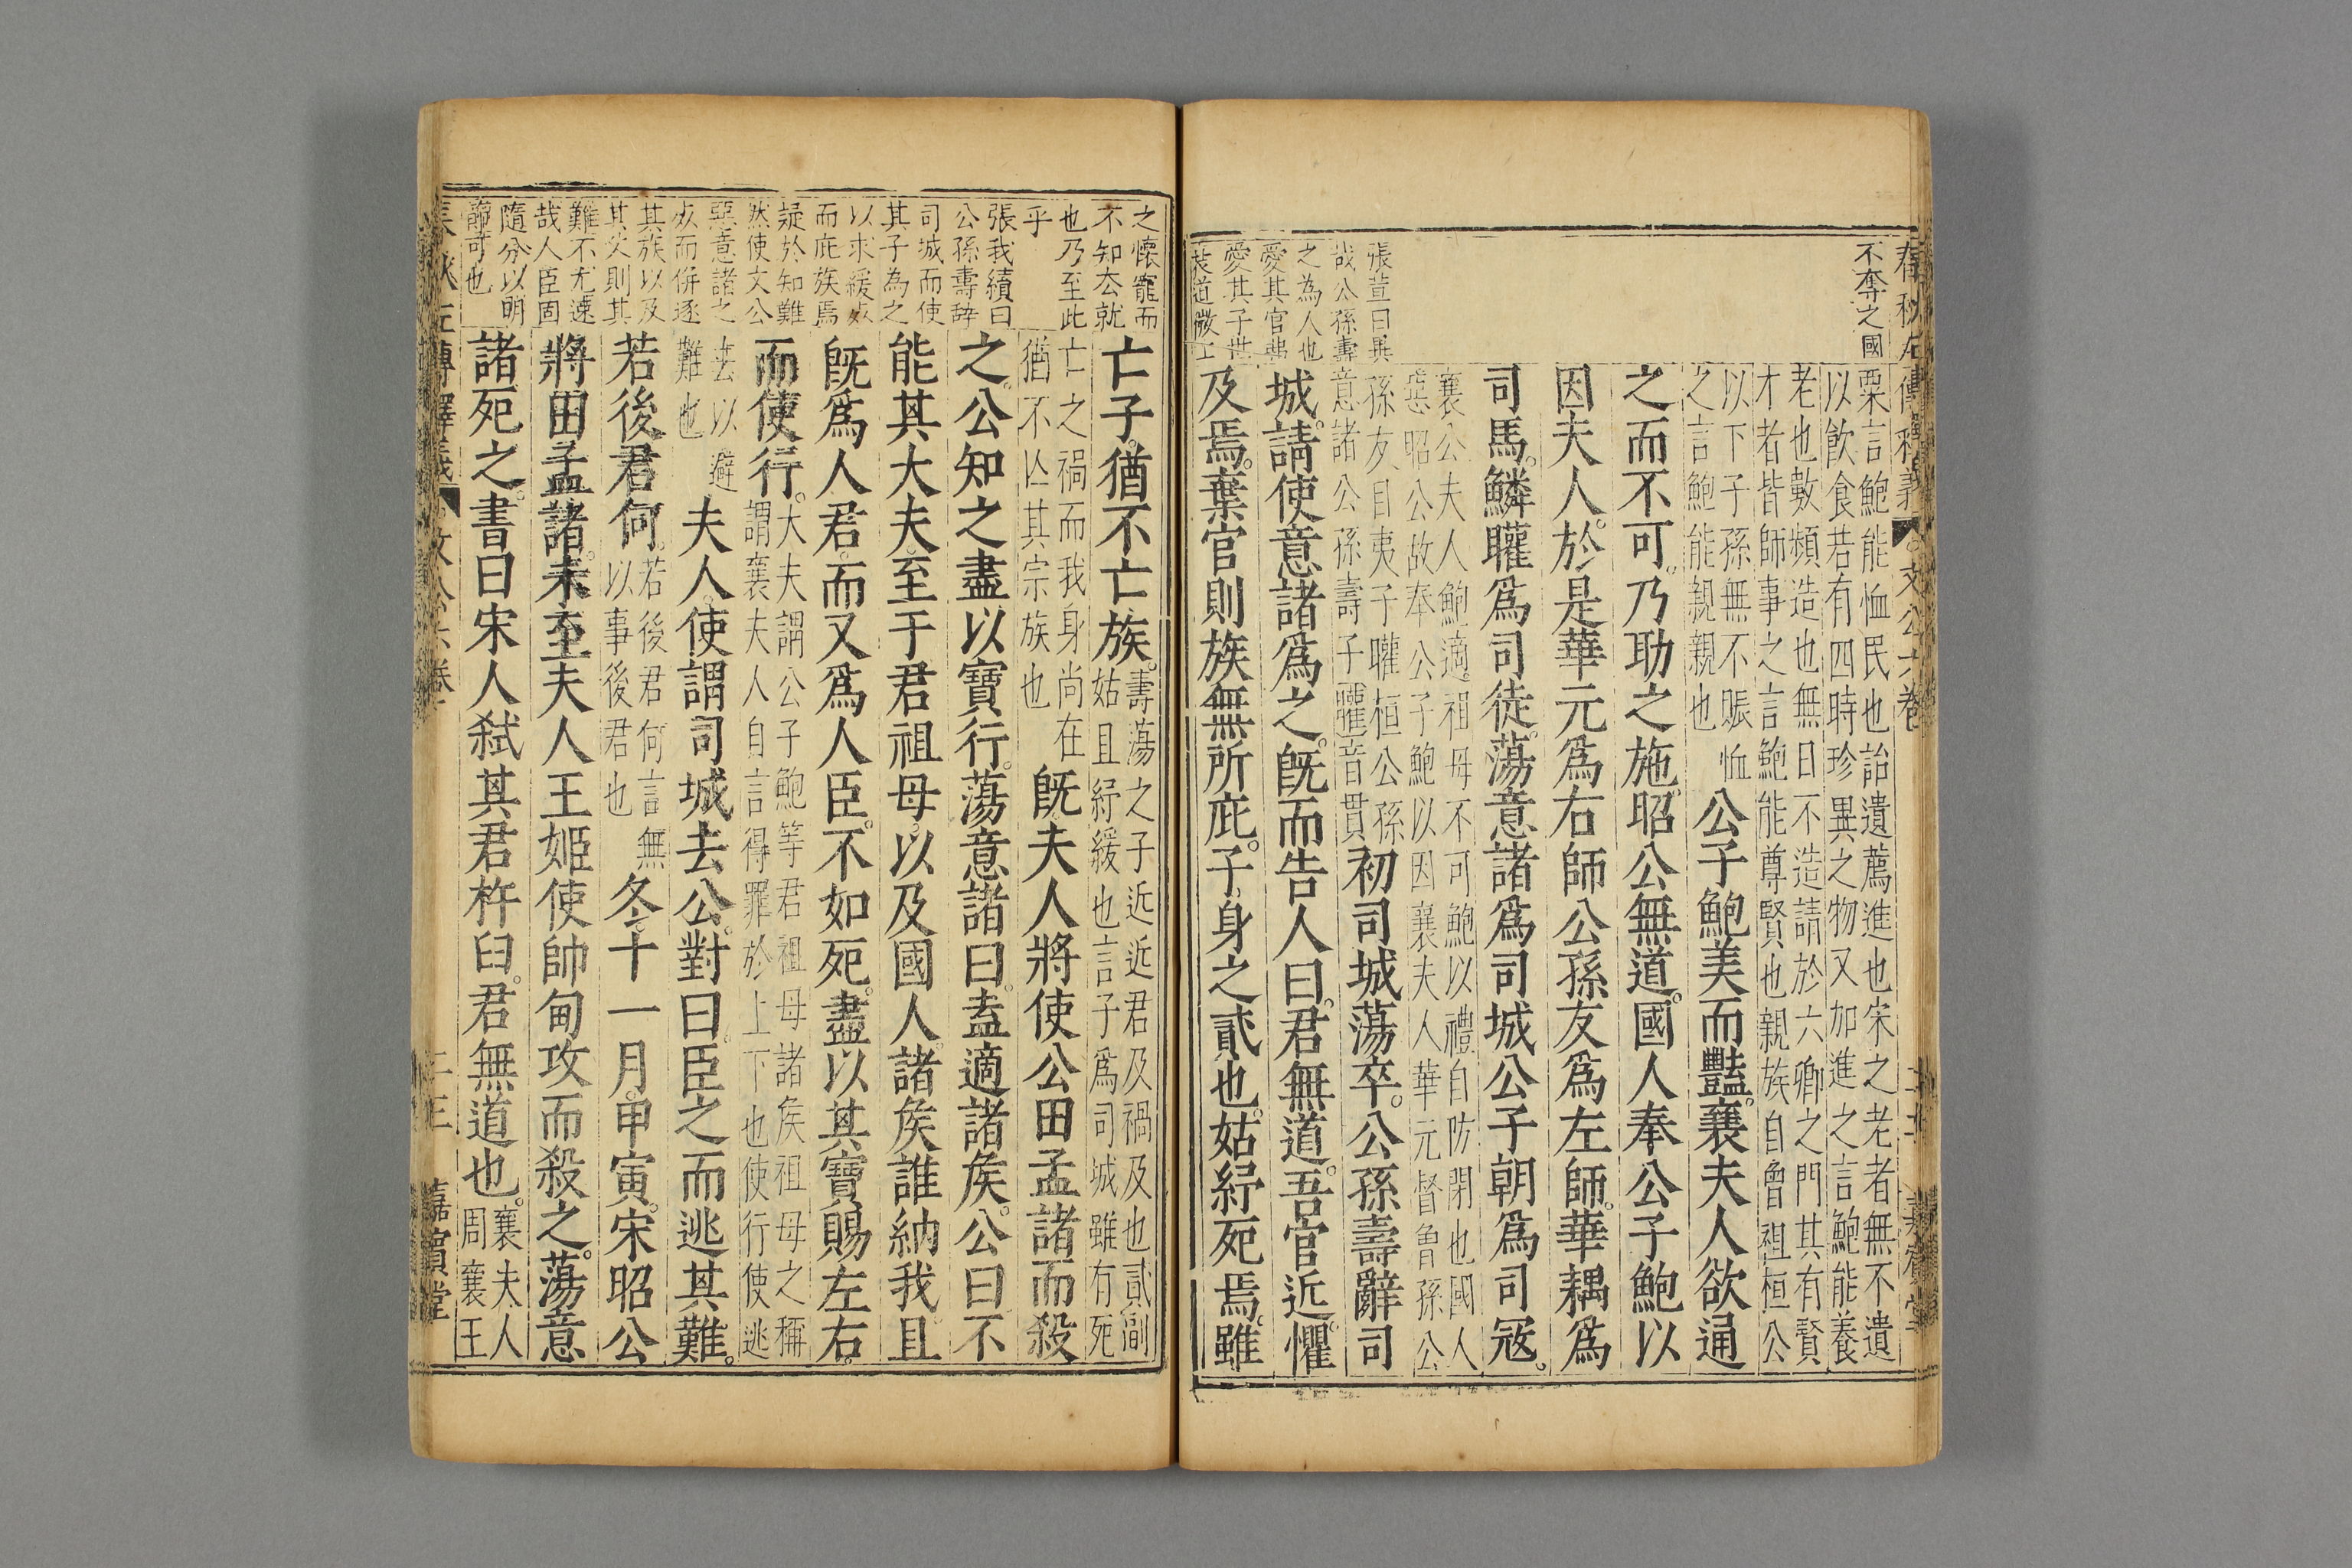 春秋左傳釋義
文公六卷
不奪之國
粟言鮑能恤民也詒遺薦進也宋之老者無不遺
以飲食若有四時珍異之物又加進之言鮑能養
老也數頻造也無日不造請於六卿之門其有賢
才者皆師事之言鮑能尊賢也親族自曾祖桓公
以下子孫無不賑恤
之言鮑能親親也
公子鮑美而豔襄夫人欲通
之而不可乃助之施昭公無道國人奉公子鮑以
因夫人於是華元爲右師公孫友爲左師華耦爲
司馬鱗矔爲司徒蕩意諸爲司城公子朝爲司寇
襄公夫人鮑適祖母不可鮑以禮自防閉也國人
惡昭公故奉公子鮑以因襄夫人華元督曾孫公
孫友目夷子矔桓公孫
意諸公孫壽子矔音貫
初司城蕩卒公孫壽辭司
張萱曰異
哉公孫壽
之為人也
愛其官弗
愛其子世
城請使意諸爲之旣而告人曰君無道吾官近懼
及焉棄官則族無所庇子身之貳也姑紓死焉雖
之懷寵而
不知去就
也乃至此
乎
亡子猶不亡族壽蕩之子近近君及禍及也貳副
姑且紓緩也言子爲司城雖有死
亡之禍而我身尚在
猶不亾其宗族也
旣夫人將使公田孟諸而殺
張我續曰
公孫壽辞
司城而使
其子為之
以求緩死
而庇族焉
疑於知難
然使文公
惡意諸之
死而併逐
其族以及
其父則其
難不尤速
哉人臣固
隨分以明
節可也
之公知之盡以寶行蕩意諸曰盍適諸矦公曰不
能其大夫至于君祖母以及國人諸矦誰納我且
旣爲人君而又爲人臣不如死盡以其寶賜左右
而使行大夫謂公子鮑等君祖母諸矦祖母之稱
謂襄夫人自言得罪於上下也使行使逃
去以避
難也
夫人使謂司城去公對曰臣之而逃其難
若後君何若後君何言無
以事後君也
冬十一月甲寅宋昭公
將田孟諸未至夫人王姬使帥甸攻而殺之蕩意
諸死之書曰宋人弑其君杵臼君無道也襄夫人
周襄王
春秋左傳釋義
文公六卷
二三
嘉賓堂